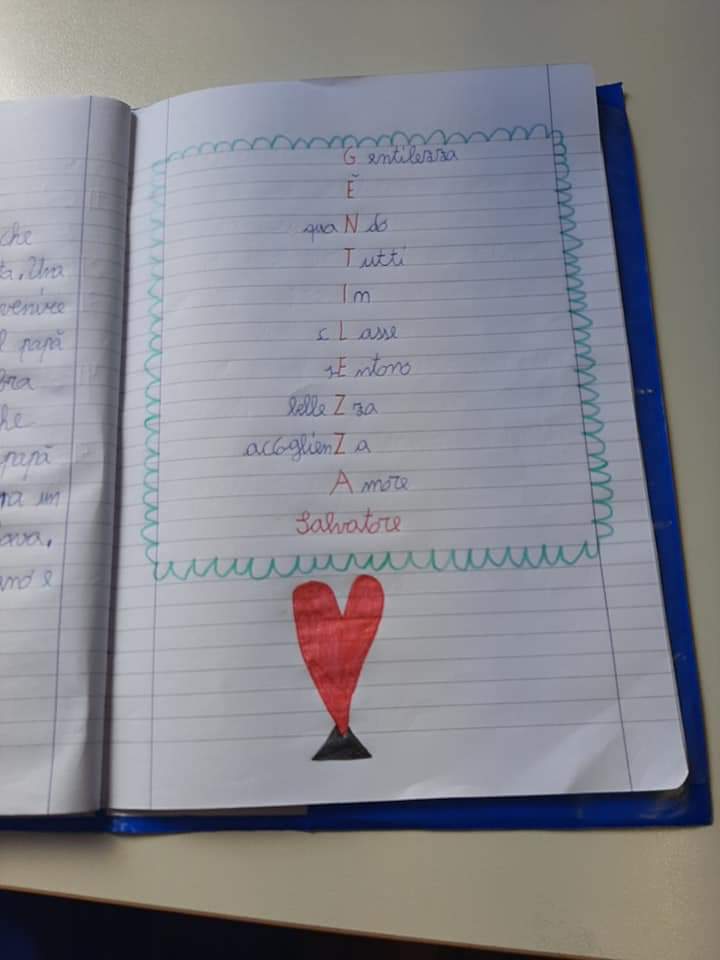 che
ta. Una
venire
l papà
bra
he
papà
ra un
ova.
ano e
Gentilezza
È
quaNdo
Tutti
In
cLasse
sEntono
belleZza
acoglienZa
Amore
Salvatore